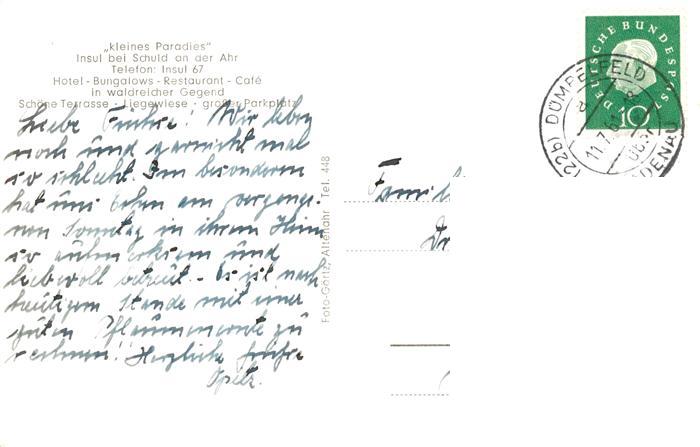 „kleines Paradies"
Insul bei Schuld an der Ahr
Telefon: Insul 67
Hotel - Bungalows - Restaurant - Café
in waldreicher Gegend
Schöne Terrasse - Liegewiese - großer Parkplatz
Liebe Wir leben
noch und garnicht mal
so schlecht. Im besonderen
hat uns am vergange-
nen Sonntag in ihrem Heim
so aufmerksam und
liebevoll betreut. - Es ist nach
heutigem Stande mit einer
guten Pflaumenernte zu
rechnen! Herzliche Grüße
Opitz.
Foto-Görtz, Altenahr Tel. 448
Famil
DEUTSCHE BUNDESPOST
10
(22b) DÜMPELFELD
a
11.7.61
DENAU